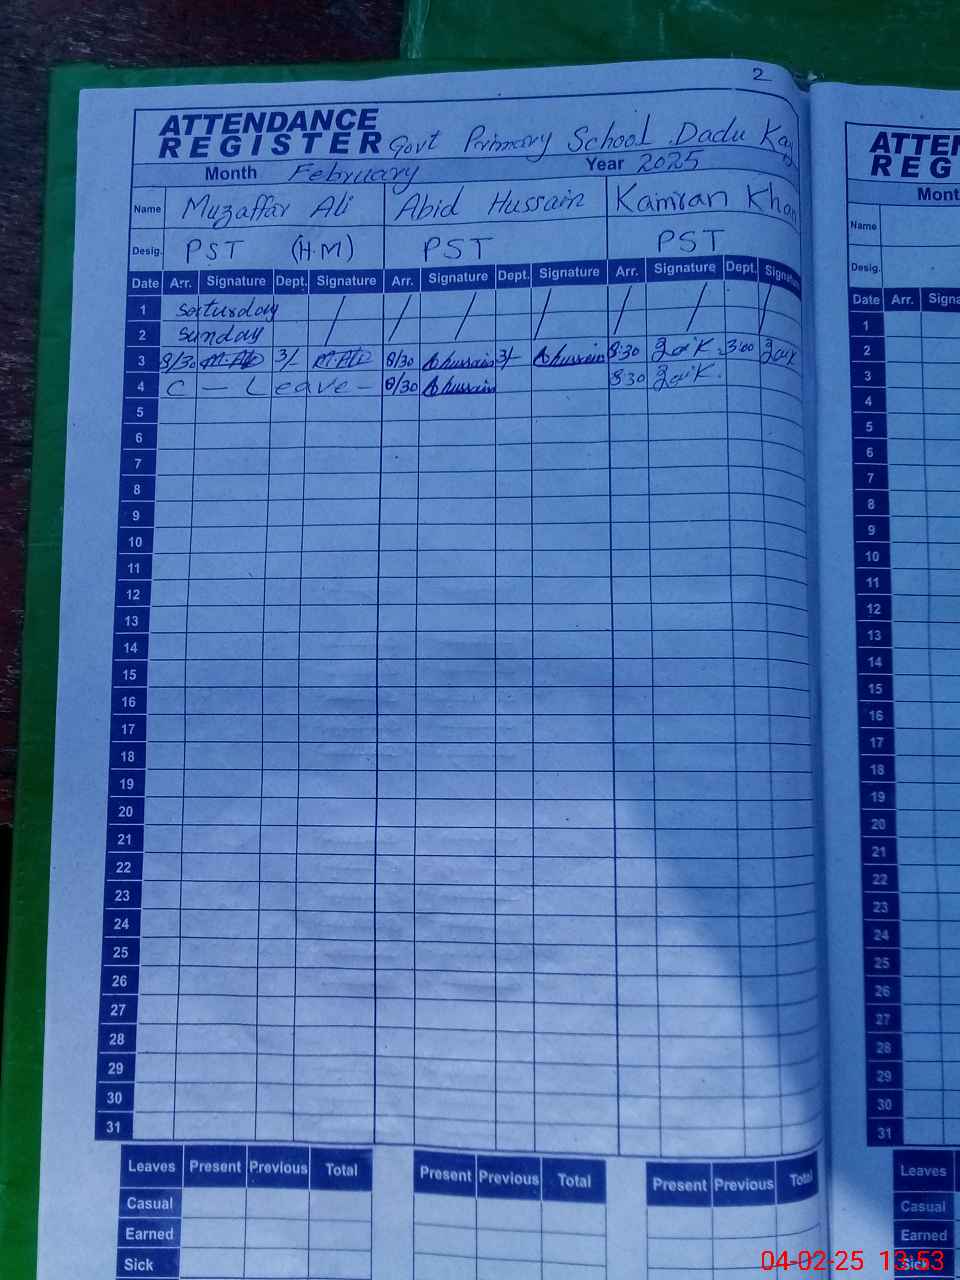 2
ATTENDANCE
REGISTER Govt Primary School Dadu
Month February Year 2025
Name Muzaffar Ali Abid Hussain Kamran Khan
Desig. PST (H.M) PST PST
Date Arr. Signature Dept. Signature Arr. Signature Dept. Signature Arr. Signature Dept. Signature
1 saturday / / / / / / /
2 sunday
3 8/30 M.Ali 3/- M.Ali 8/30 Ahussain 3/- Ahussain 8:30 3:00
4 C - Leave - 8/30 Ahussain 8 30
5
6
7
8
9
10
11
12
13
14
15
16
17
18
19
20
21
22
23
24
25
26
27
28
29
30
31
Leaves Present Previous Total Present Previous Total Present Previous Total
Casual
Earned
Sick
ATTEN
REG
Mont
Name
Desig.
Date Arr. Signa
1
2
3
4
5
6
7
8
9
10
11
12
13
14
15
16
17
18
19
20
21
22
23
24
25
26
27
28
29
30
31
Leaves
Casual
Earned
Sick
04-02-25 13:53